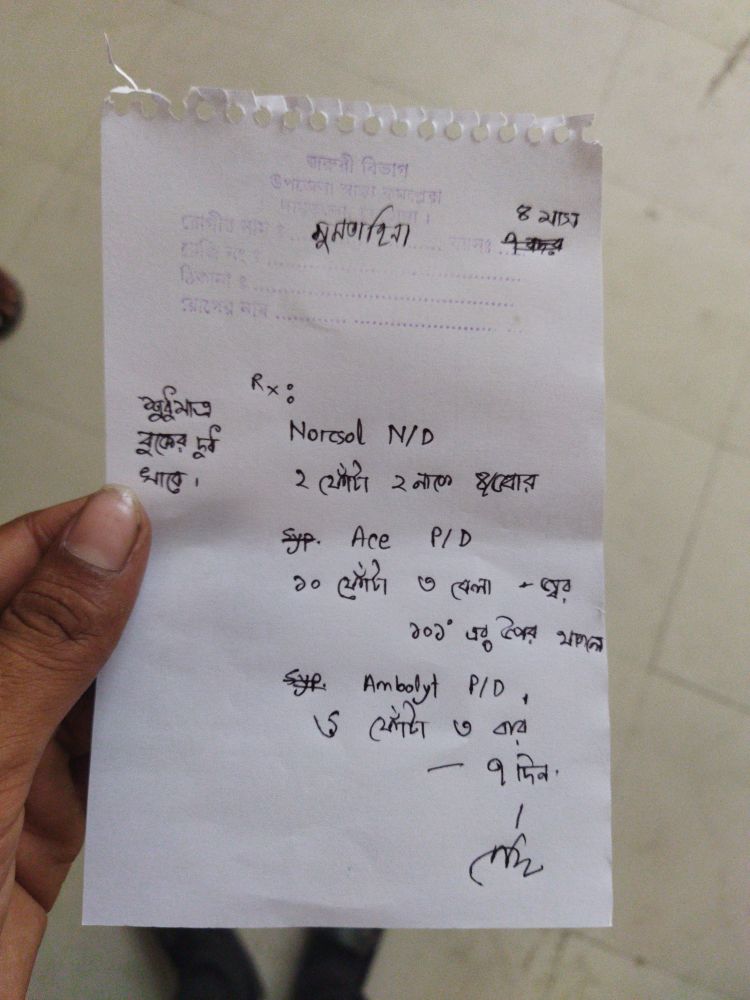 জরুরী বিভাগ
উপজেলা স্বাস্থ্য কমপ্লেক্স
রোগীর নাম ঃ ........ মুনতাহিনা ........ বয়সঃ ... ৪ মাস
রেজি নং ঃ ........................
ঠিকানা ঃ ........................
রোগের নাম ........................
শুধুমাত্র
বুকের দুধ
খাবে।
Rx:
Norsol N/D
২ ফোঁটা ২ নাকে
Syp. Ace P/D
১০ ফোঁটা ৩ বেলা - জ্বর
১০১° এর উপর থাকলে
Syp. Ambolyt P/D
৬ ফোঁটা ৩ বার
— ৭ দিন.